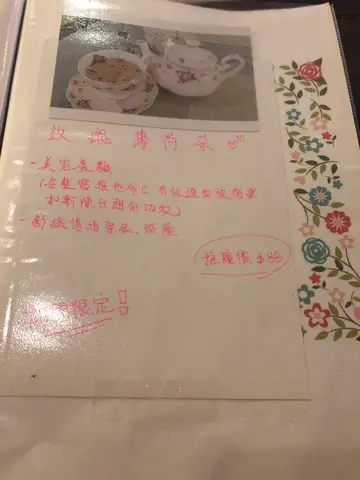 玫瑰薄荷茶
- 美容養顏
(含豐富維他命C 有促進血液循環
和新陳代謝的功效)
- 舒緩情緒緊張、
推廣價 $86
限定!